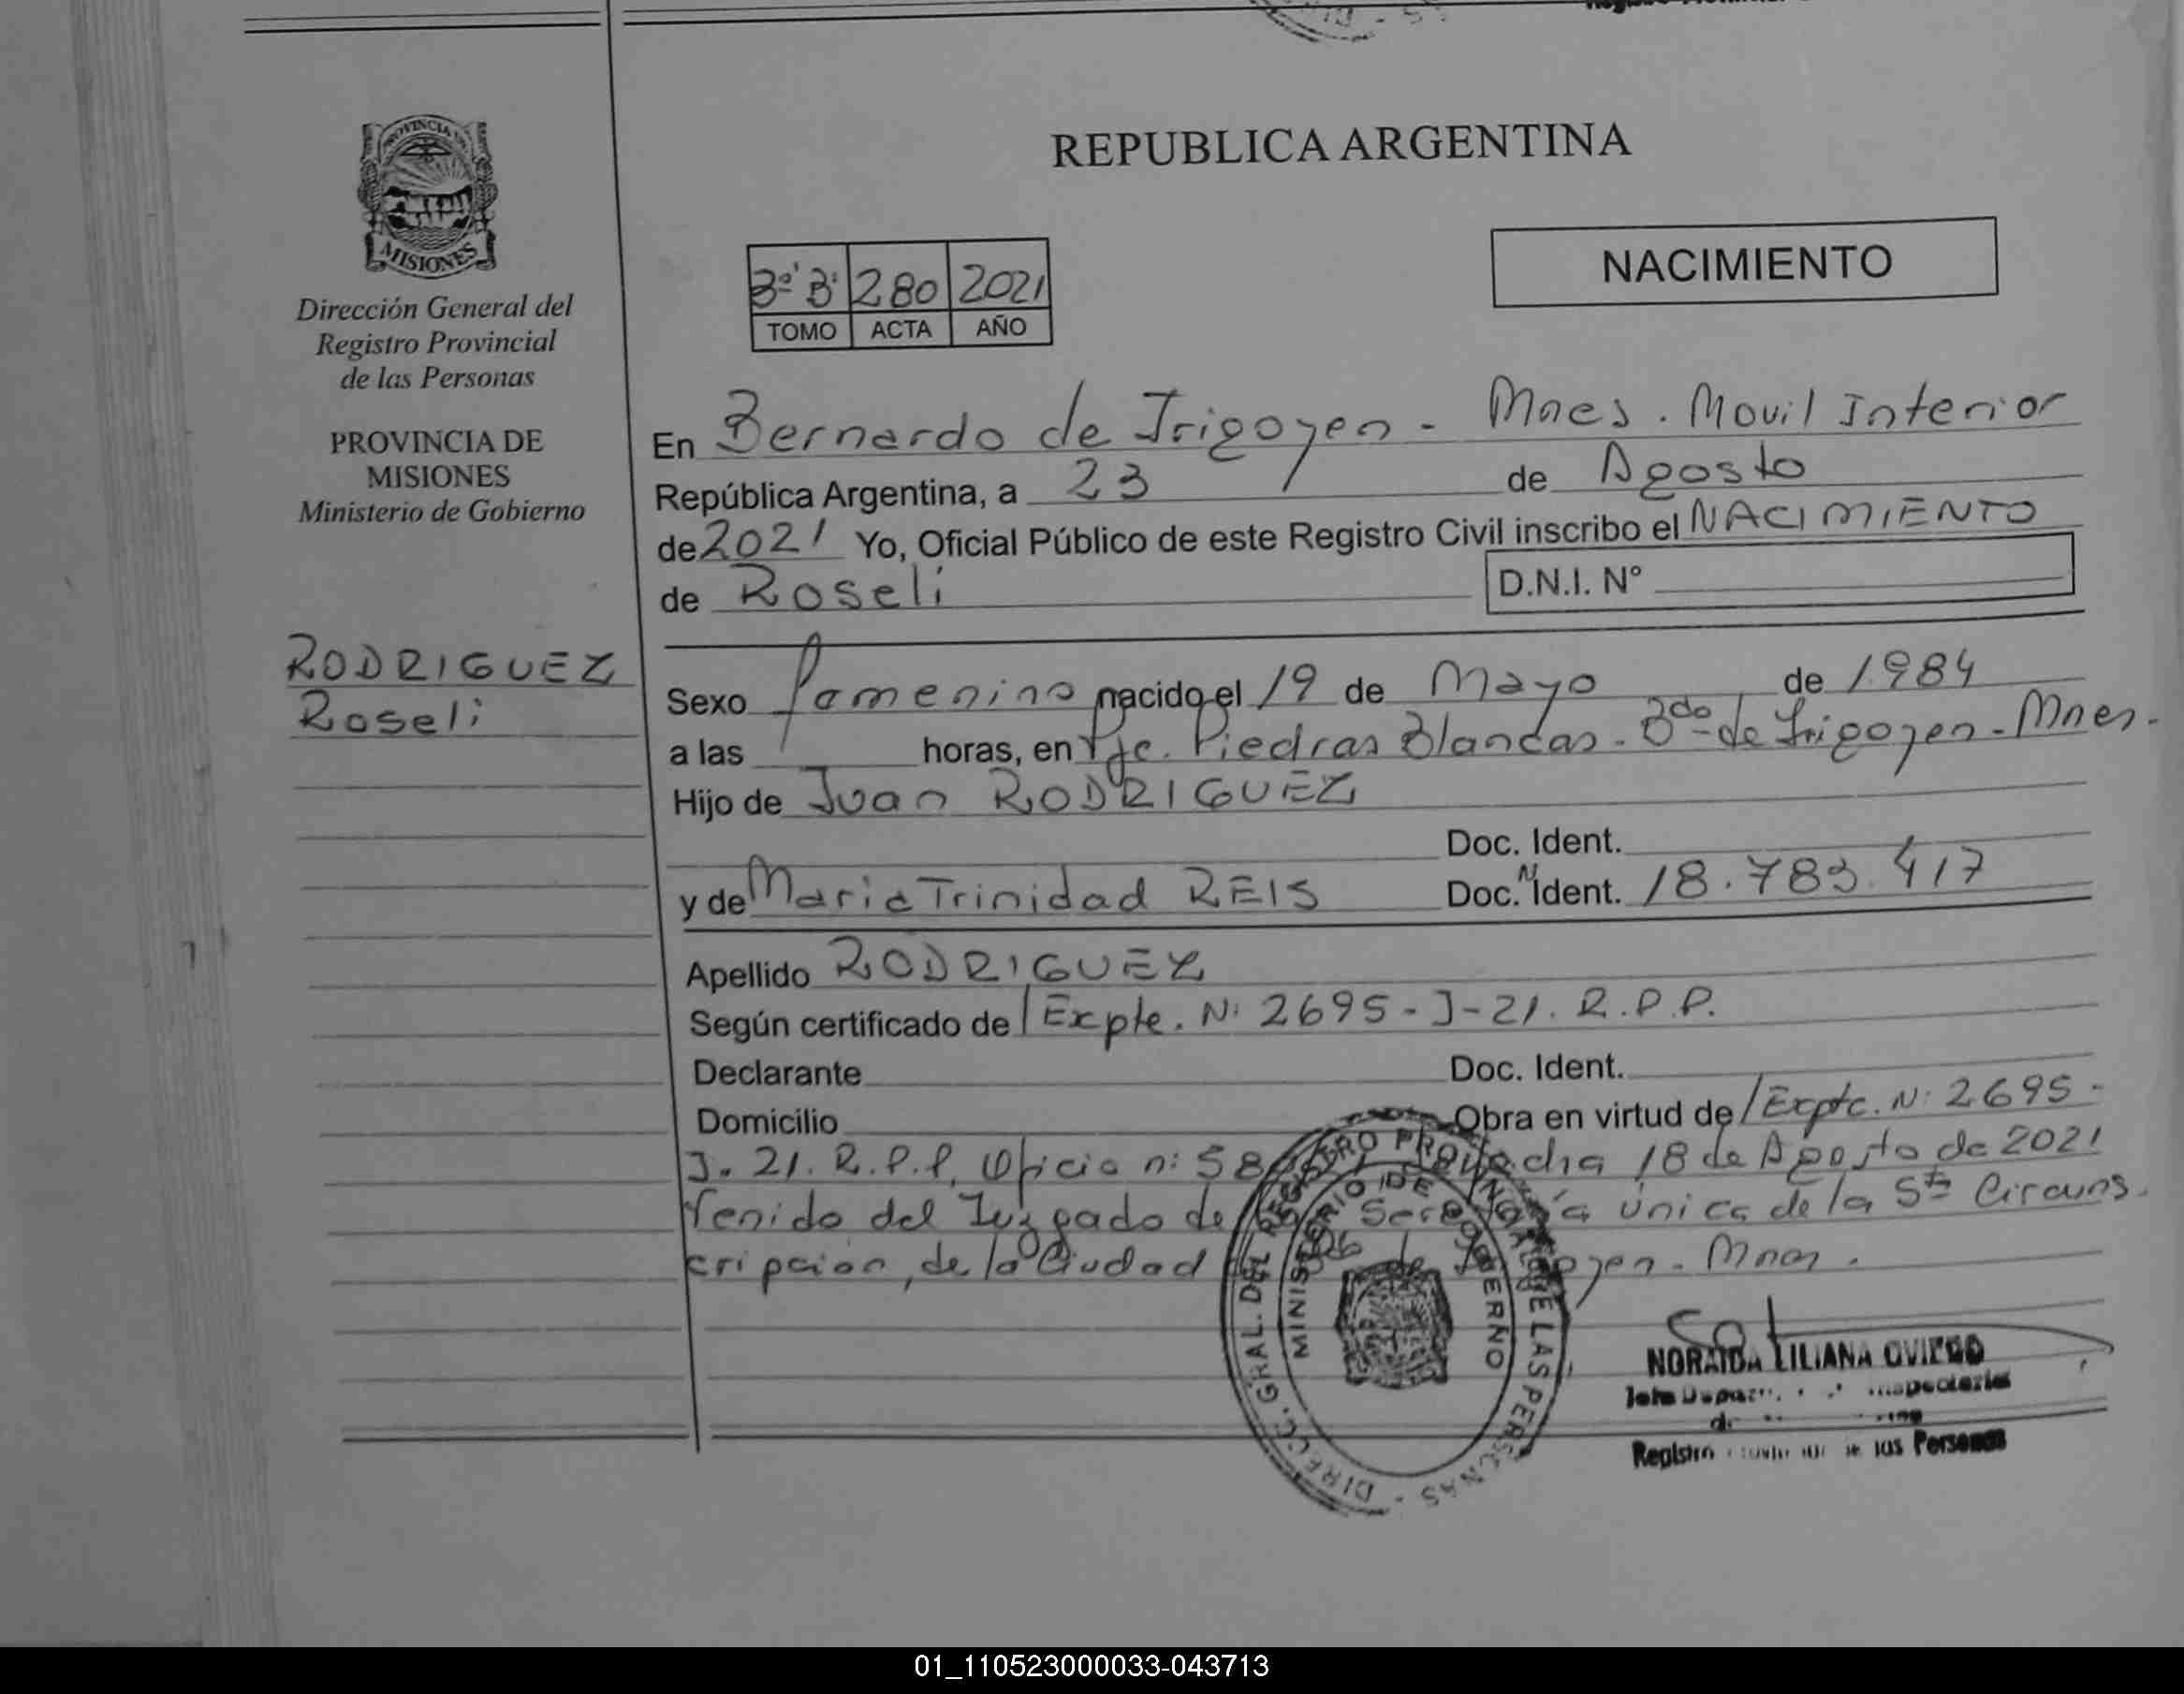 REPUBLICA ARGENTINA
PROVINCIA DE
MISIONES
Dirección General del
Registro Provincial
de las Personas
PROVINCIA DE
MISIONES
Ministerio de Gobierno
RODRIGUEZ
Roseli
NACIMIENTO
3º B. 280 2021
TOMO ACTA AÑO
En Bernardo de Irigoyen - Mnes. Movil Interior
República Argentina, a 23 de Agosto
de 2021 Yo, Oficial Público de este Registro Civil inscribo el NACIMIENTO
de Roseli D.N.I. Nº
Sexo femenino nacido el 19 de Mayo de 1984
a las horas, en Pje. Piedras Blancas. Bdo de Irigoyen - Mnes.
Hijo de Juan RODRIGUEZ
Doc. Ident.
y de Maria Trinidad REIS Doc. Ident. Nº 18.783.417
Apellido RODRIGUEZ
Según certificado de / Expte. Nº 2695 - J - 21. R.P.P.
Declarante Doc. Ident.
Domicilio Obra en virtud de / Expte. Nº 2695 -
J. 21. R.P.P. Oficio nº 58 fecha 18 de Agosto de 2021
Venido del Juzgado de Secretaría única de la 5ta Circuns.
cripcion, de la Ciudad de Irigoyen - Mnes.
DIRECC. GRAL. DEL REGISTRO PROVINCIAL DE LAS PERSONAS -
MINISTERIO DE GOBIERNO
NORAIDA LILIANA OVIEDO
Registro de las Personas
01_110523000033-043713